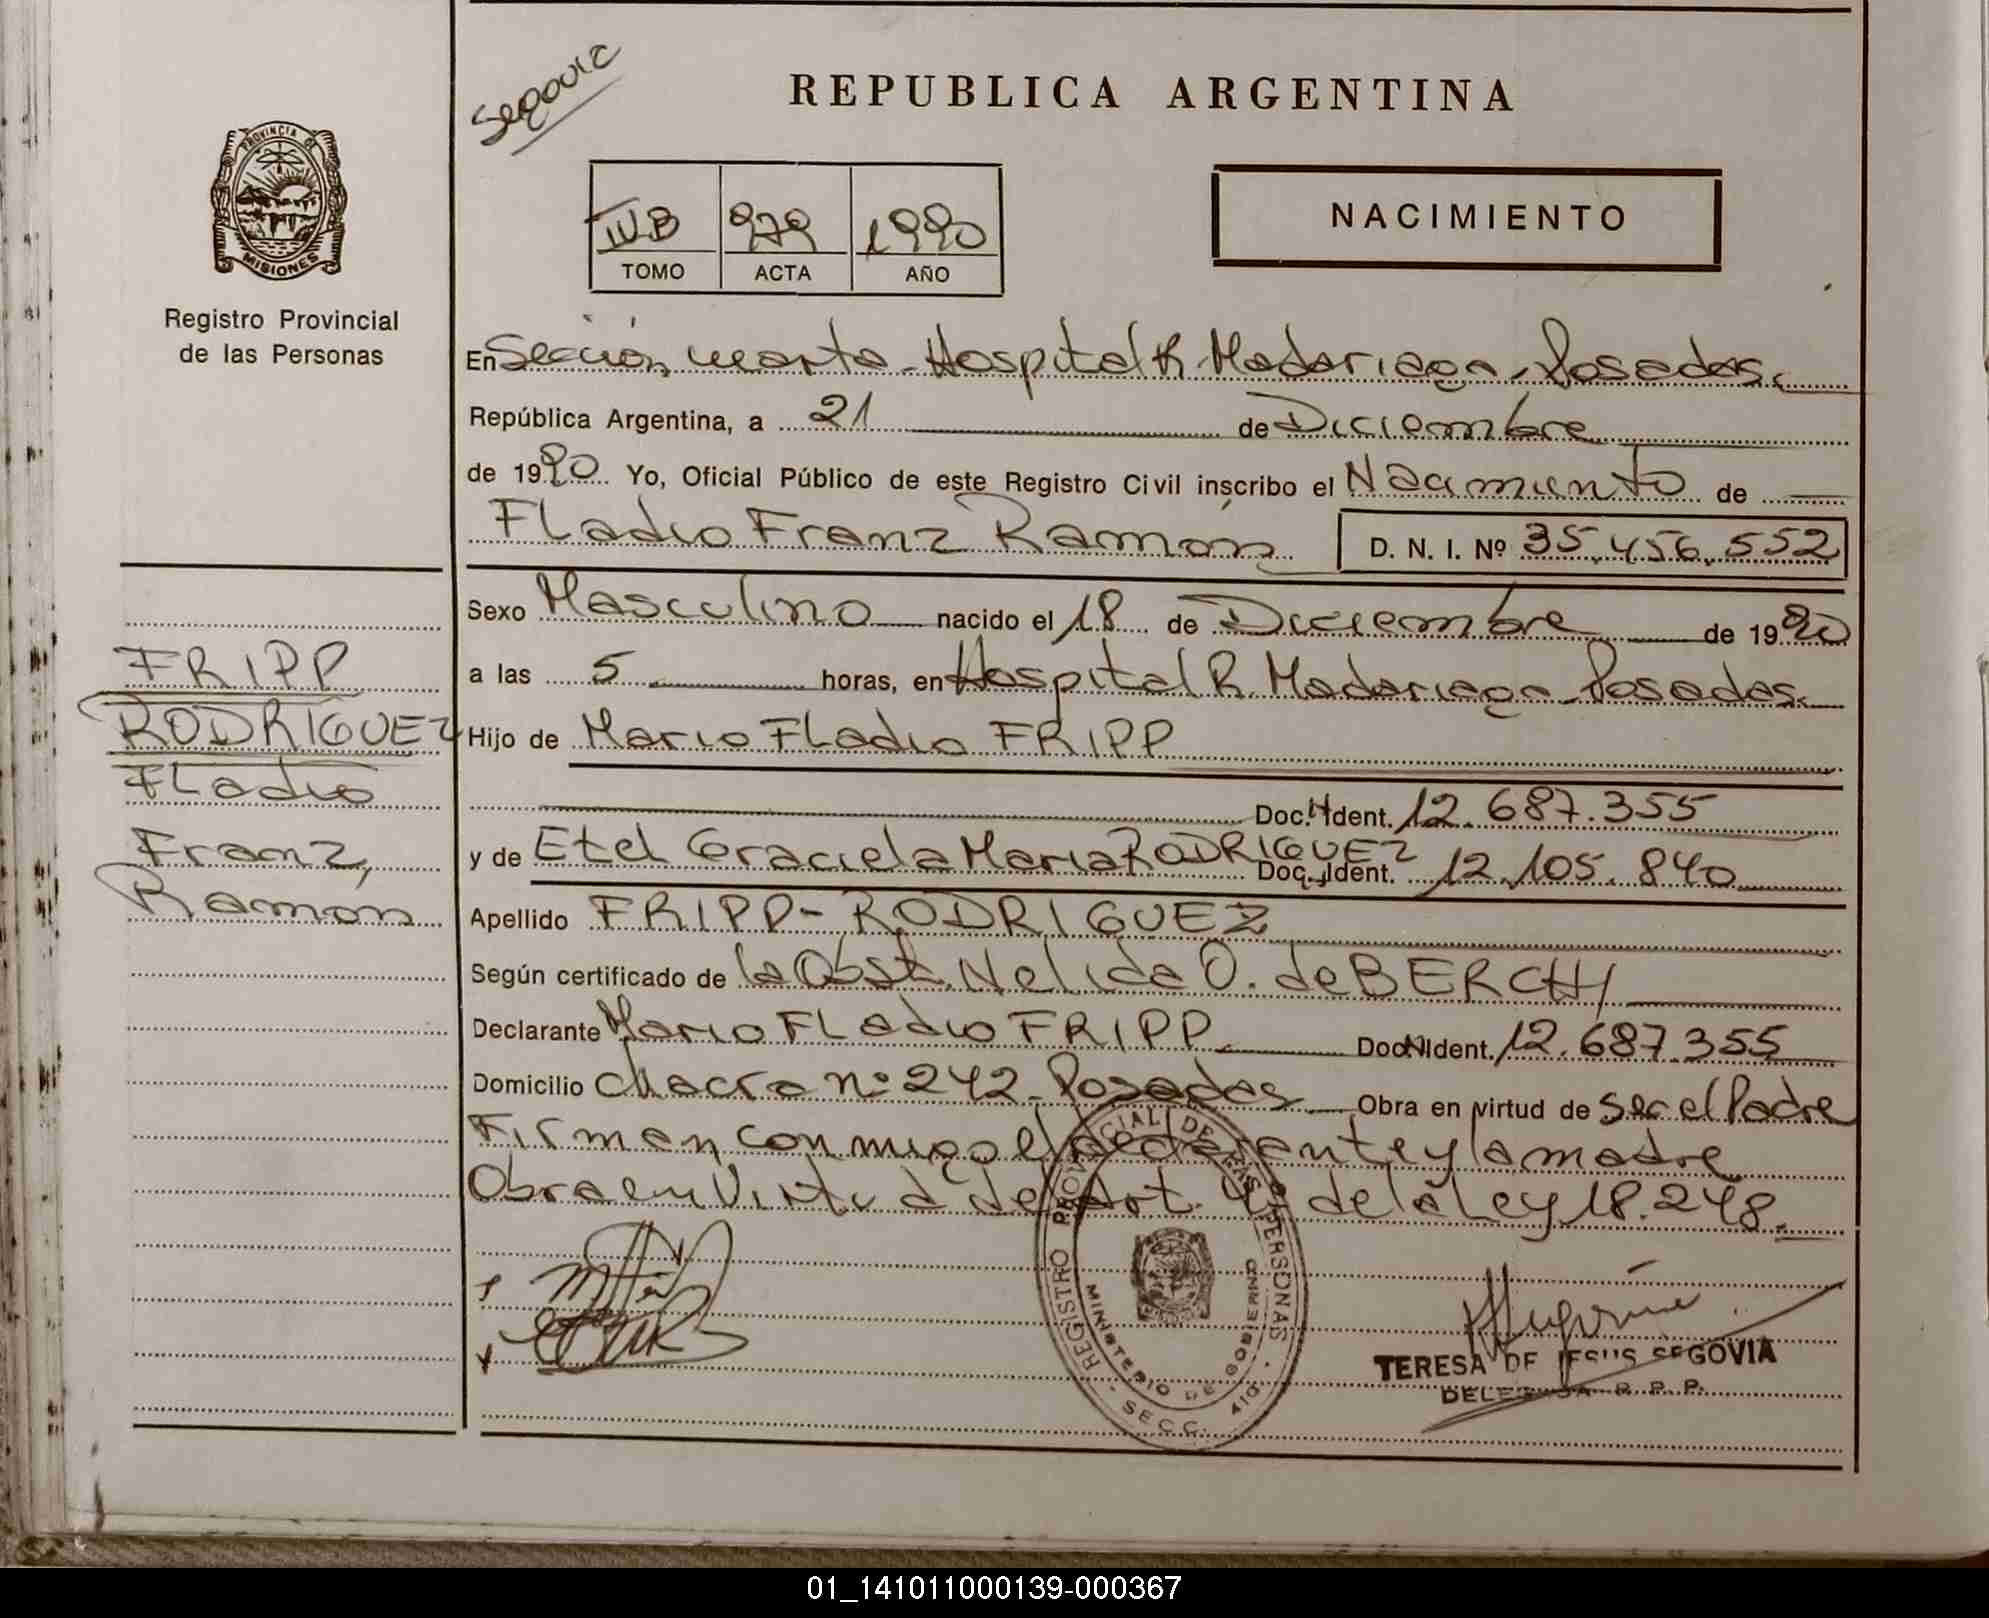 Segovia
REPUBLICA ARGENTINA
PROVINCIA DE
MISIONES
Registro Provincial
de las Personas
IVB 979 1990
TOMO ACTA AÑO
NACIMIENTO
En Sección cuarta - Hospital R. Madariaga - Posadas.
República Argentina, a 21 de Diciembre
de 1990 Yo, Oficial Público de este Registro Civil inscribo el Nacimiento de
Fladio Franz Ramón D. N. I. Nº 35.456.552
Sexo Masculino nacido el 18 de Diciembre de 1990
a las 5 horas, en Hospital R. Madariaga - Posadas.
Hijo de Mario Fladio FRIPP
Doc. N Ident. 12.687.355
y de Etel Graciela Maria RODRIGUEZ Doc. Ident. 12.105.840
Apellido FRIPP - RODRIGUEZ
Según certificado de la Obst. Nelida O. de BERCHI
Declarante Mario Fladio FRIPP Doc. N Ident. 12.687.355
Domicilio Chacra nº 242 - Posadas Obra en virtud de ser el Padre
Firman conmigo el declarante y la madre
Obra en Virtud del Art. 4º de la Ley 18.248.
FRIPP
RODRIGUEZ
Fladio
Franz,
Ramon
REGISTRO PROVINCIAL DE LAS PERSONAS
MINISTERIO DE GOBIERNO
SECC. 4TA.
TERESA DE JESUS SEGOVIA
DELEGADA R. P. P.
01_141011000139-000367